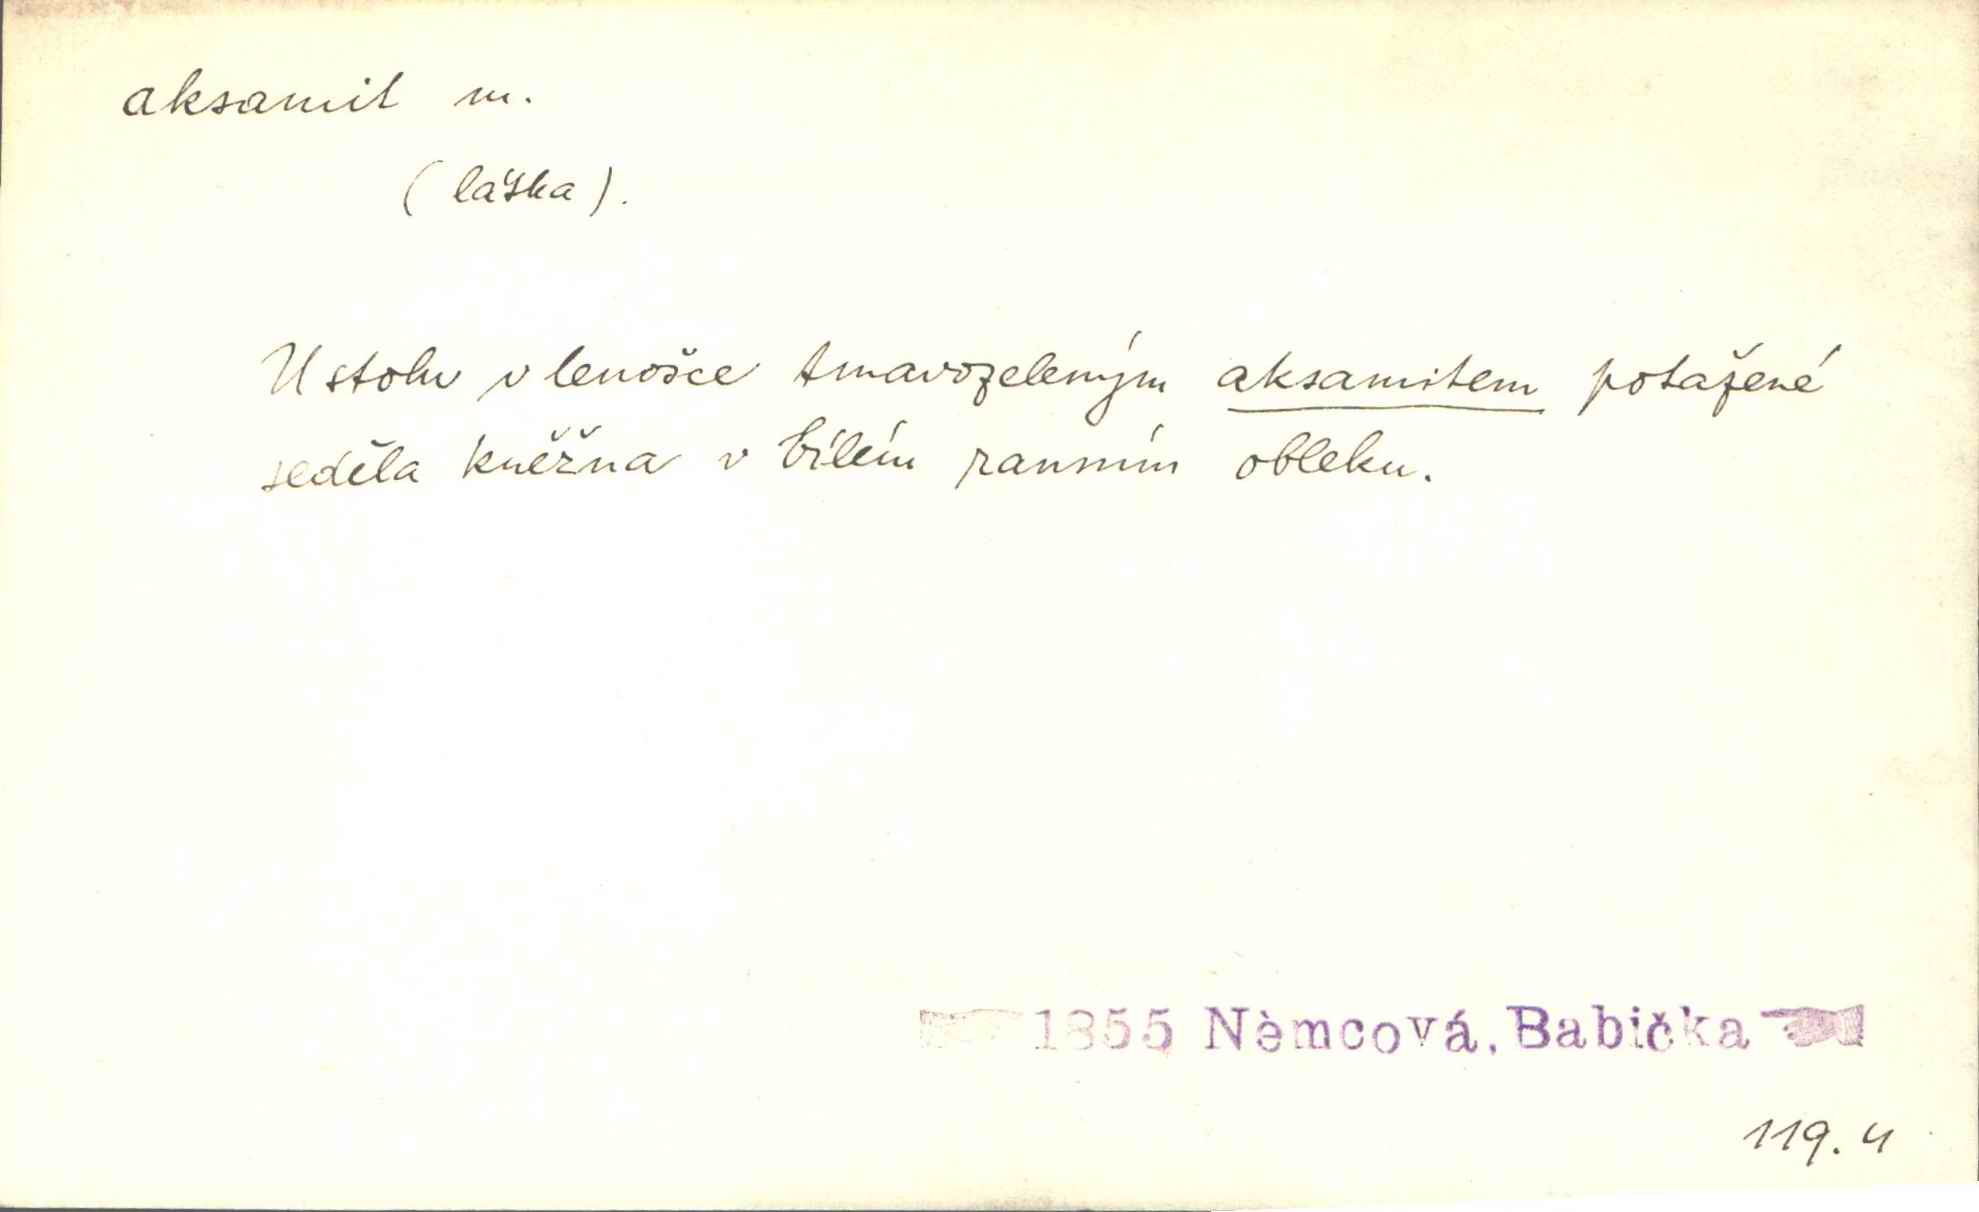 aksamit m.
(látka).
U stolu v lenošce tmavozeleným aksamitem potažené
seděla kněžna v bílém ranním obleku.
1855 Němcová, Babička
119.4